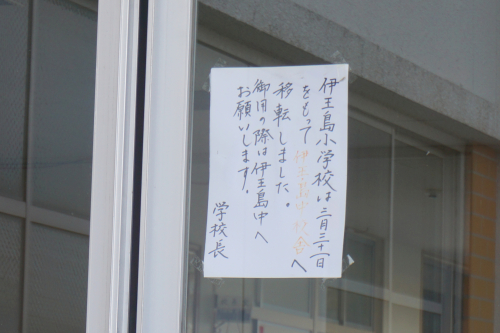 伊王島小学校は三月三十一日
をもって伊王島中校舎へ
移転しました。
御用の際は伊王島中へ
お願いします。
学校長